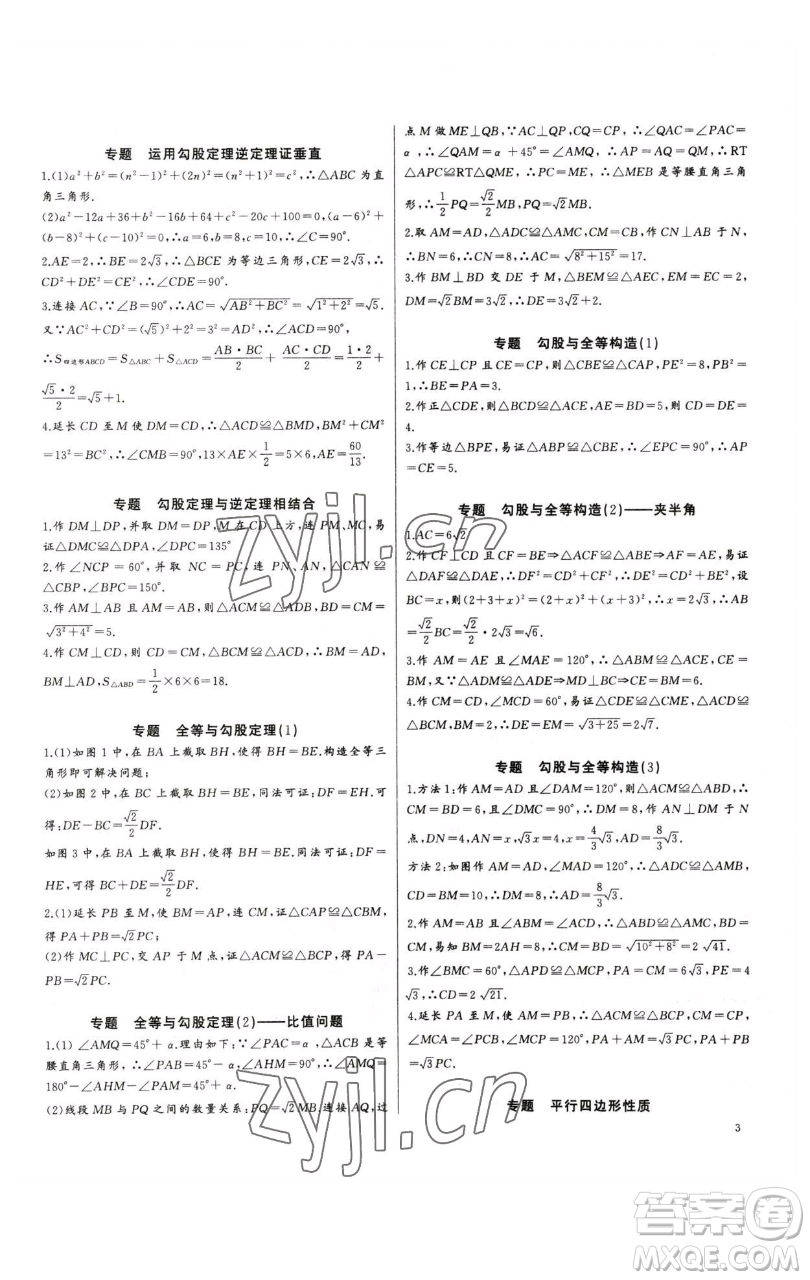 专题 运用勾股定理逆定理证垂直
1.(1)a²+b²=(n²-1)²+(2n)²=(n²+1)²=c²,∴△ABC 为直
角三角形.
(2)a²-12a+36+b²-16b+64+c²-20c+100=0,(a-6)²+
(b-8)²+(c-10)²=0,∴a=6,b=8,c=10,∴∠C=90°.
2.AE=2,∴BE=2√3,∴△BCE 为等边三角形,CE=2√3,∴
CD²+DE²=CE²,∴∠CDE=90°.
3.连接 AC,∵∠B=90°,∴AC=√(AB²+BC²)=√(1²+2²)=√5.
又∵AC²+CD²=(√5)²+2²=3²=AD²,∴∠ACD=90°,
∴S四边形ABCD=S△ABC+S△ACD=AB·BC/2+AC·CD/2=1·2/2+
√5·2/2=√5+1.
4.延长 CD 至 M 使 DM=CD,∴△ACD≌△BMD,BM²+CM²
=13²=BC²,∴∠CMB=90°,13×AE×1/2=5×6,∴AE=60/13.
专题 勾股定理与逆定理相结合
1.作 DM⊥DP,并取 DM=DP,M 在 CD 上方,连 PM、MC,易
证△DMC≌△DPA,∠DPC=135°
2.作∠NCP=60°,并取 NC=PC,连 PN、AN,△CAN≌
△CBP,∠BPC=150°.
3.作 AM⊥AB 且 AM=AB,则△CAM≌△DAB,BD=CM=
√(3²+4²)=5.
4.作 CM⊥CD 且 CM=CD,则△BCM≌△ACD,∴BM=AD,
BM⊥AD,S△ABD=1/2×6×6=18.
专题 全等与勾股定理(1)
1.(1)如图 1 中,在 BA 上截取 BH,使得 BH=BE.构造全等三
角形即可解决问题;
(2)如图 2 中,在 BC 上截取 BH=BE,同法可证:DF=EH.可
得:DE-BC=√2/2DF.
如图 3 中,在 BA 上截取 BH,使得 BH=BE.同法可证:DF=
HE,可得 BC+DE=√2/2DF.
2.(1)延长 PB 至 M,使 BM=AP,连 CM,证△CAP≌△CBM,
得 PA+PB=√2PC;
(2)作 MC⊥PC,交 AP 于 M 点,证△ACM≌△BCP,得 PA-
PB=√2PC.
专题 全等与勾股定理(2)——比值问题
1.(1)∠AMQ=45°+α.理由如下:∵∠PAC=α,△ACB 是等
腰直角三角形,∴∠PAB=45°-α,∠AHM=90°,∴∠AMQ=
180°-∠AHM-∠PAM=45°+α.
(2)线段 MB 与 PQ 之间的数量关系:PQ=√2MB.连接 AQ,过
点 M 做 ME⊥QB,∵AC⊥QP,CQ=CP,∴∠QAC=∠PAC=
α,∴∠QAM=α+45°=∠AMQ,∴AP=AQ=QM,∴RT
△APC≌RT△QME,∴PC=ME,∴△MEB 是等腰直角三角
形,∴1/2PQ=√2/2MB,PQ=√2MB.
2.取 AM=AD,△ADC≌△AMC,∴CM=10,作 CN⊥AB 于 N,
∴BN=6,CN=8,∴AC=√(8²+15²)=17.
3.作 AM⊥BD 交 DE 于 M,△BEM≌△AEC,EM=EC=2,
DM=√2BM=3√2,∴DE=3√2+2.
专题 勾股与全等构造(1)
1.作 CE⊥CP 且 CE=CP,则△CBE≌△CAP,PE²=8,PB²=
1,∴BE=PA=3.
2.作正△CDE,则△BCD≌△ACE,AE=BD=5,则 CD=DE=
4.
3.作等边△BPE,易证△ABP≌△CPE,∠EPC=90°,∴AP
=CE=5.
专题 勾股与全等构造(2)——夹半角
1.AC=6√2
2.作 CF⊥CD 且 CF=BE⇒△ACF≌△ABE⇒AF=AE,易证
△DAF≌△DAE⇒DF=DE,∴CD²+CF²=CD²+BE²,设
BC=x,则(2+3+x)²=(2+x)²+(3+x)²,∴x=2√3,∴AB
=√2/2BC=√2/2·2√3=√6.
3.作 AM=AE,∠MAE=120°,∴△ABM≌△ACE,∴BM=
8,又∵△ADM≌△ADE,∴DM=DE⇒BD=CE=BM=6.
4.作 CM=CD,∠MCD=60°,易证△CDE≌△CME,△ACD
≌△BCM,BM=AD=5,∴DE=EM=√(3+25)=2√7.
专题 勾股与全等构造(3)
1.方法 1:作 AM=AD 且∠DAM=120°,则△ABD≌△ACM,
CM=BD=6,又∠DMC=90°,∴DM=8,作 AN⊥DM 于 N
点,DN=4,AN=x,√3x=4,x=4/3√3,AD=8/3√3.
方法 2:如图作 AM=AD,∠MAD=120°,∴△ADC≌△AMB,
CD=BM=10,∴DM=8,∴AD=8/3√3.
2.作 AM=AD 且∠ABM=∠ABC,则△ABM≌△ACD,BD=
CM,易知 BM=2AH=8,∴CM=BD=√(10²+8²)=2√41.
3.作∠BMC=60°,△APB≌△AMC,PA=CM=6√3,PM=4
√3,∴PC=2√21.
4.延长 PA 至 M,使 AM=PB,∴△MAC≌△PBC,∴CM=CP,
∠MCA=∠PCB,∠MCP=120°,PA+AM=√3PC,PA+PB
=√3PC.
专题 平行四边形性质
3
zyjl.cn
zyjl.cn
答案圈
MXQE.COM